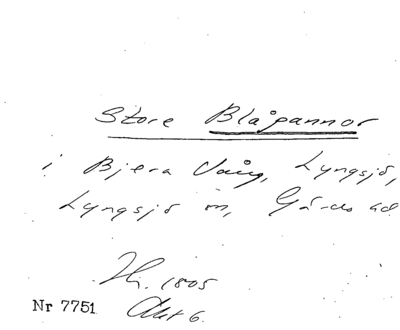 Store Blåpannor
i Bjera Vång, Lyngsjö,
Lyngsjö sn, Gärds hd
Hj. 1805
Nr 7751. Akt 6.